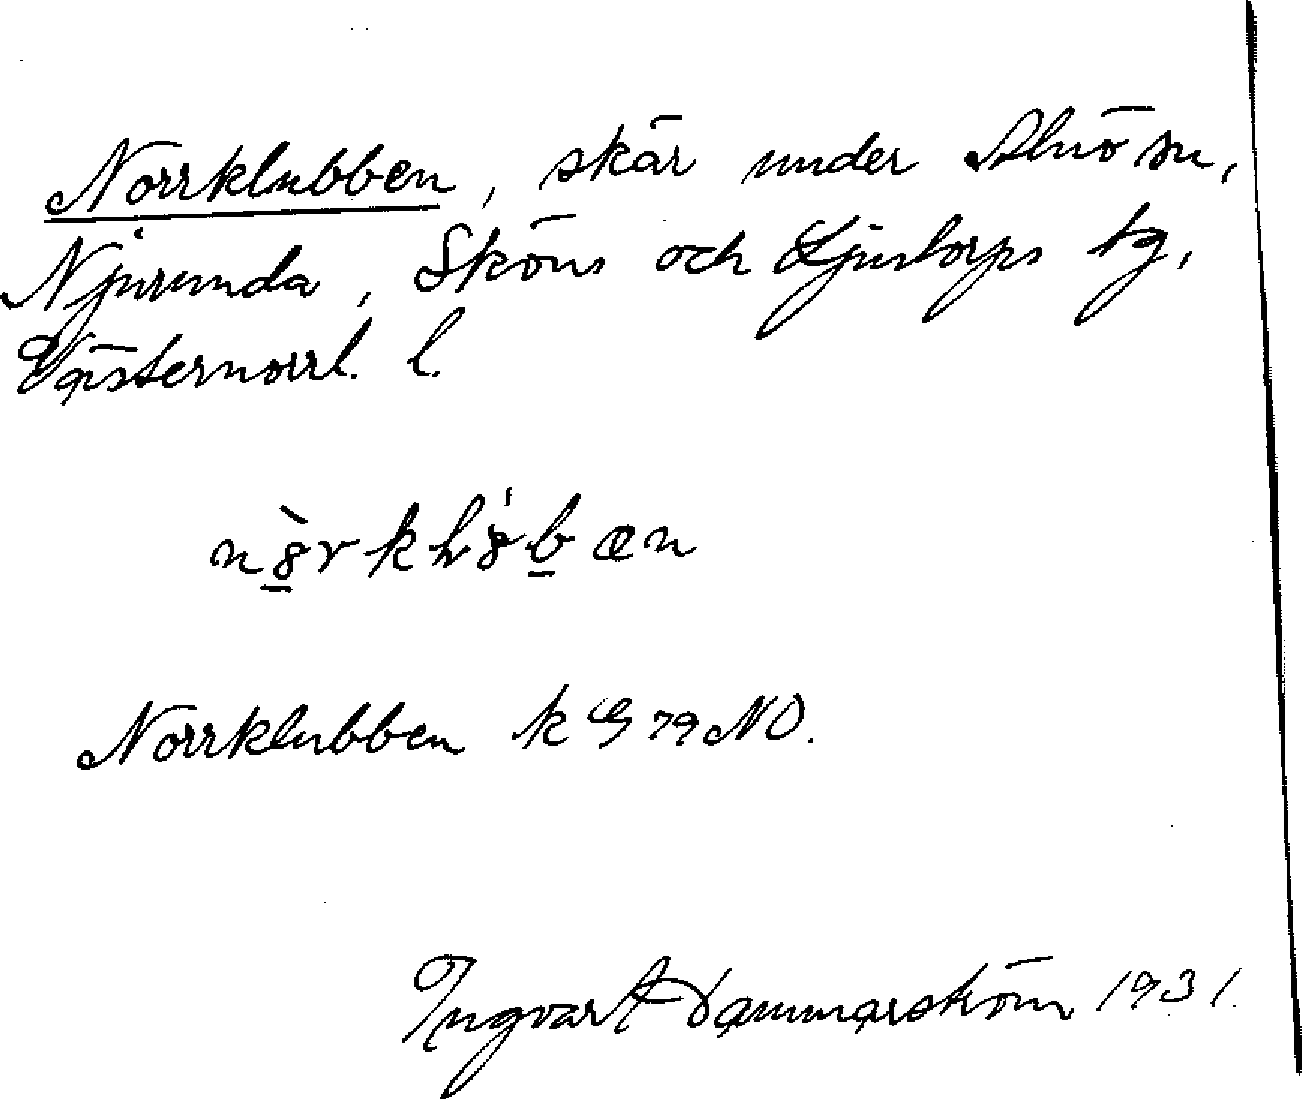 Norrklubben, skär under Alnö sn,
Njurunda, Sköns och Ljustorps tg,
Västernorrl. l.
Norrklubben k G 79 NO.
Ingvar Hammarström 1931.